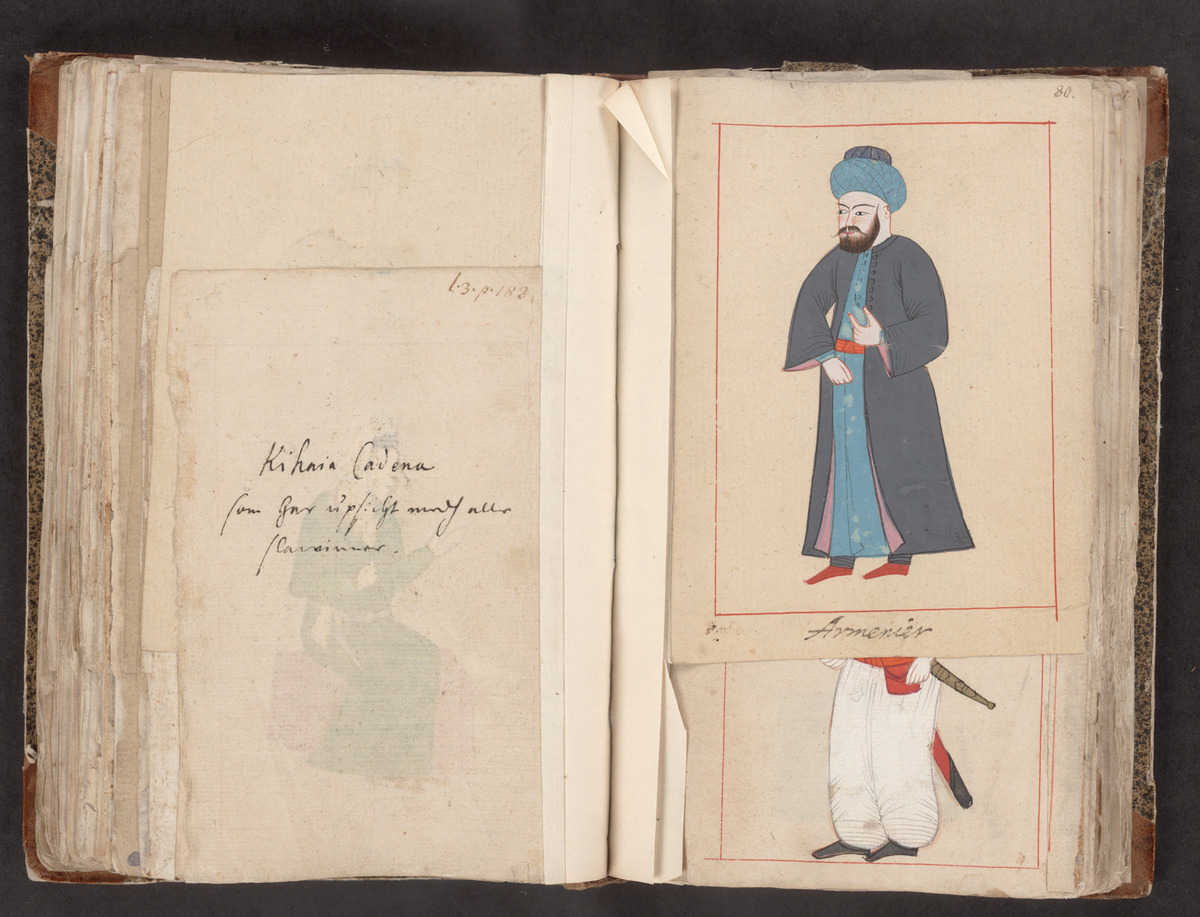 l. 3. p. 188.
Kihaia Cadena
som har upsicht medh alla
slavinnor.
80.
Armenier